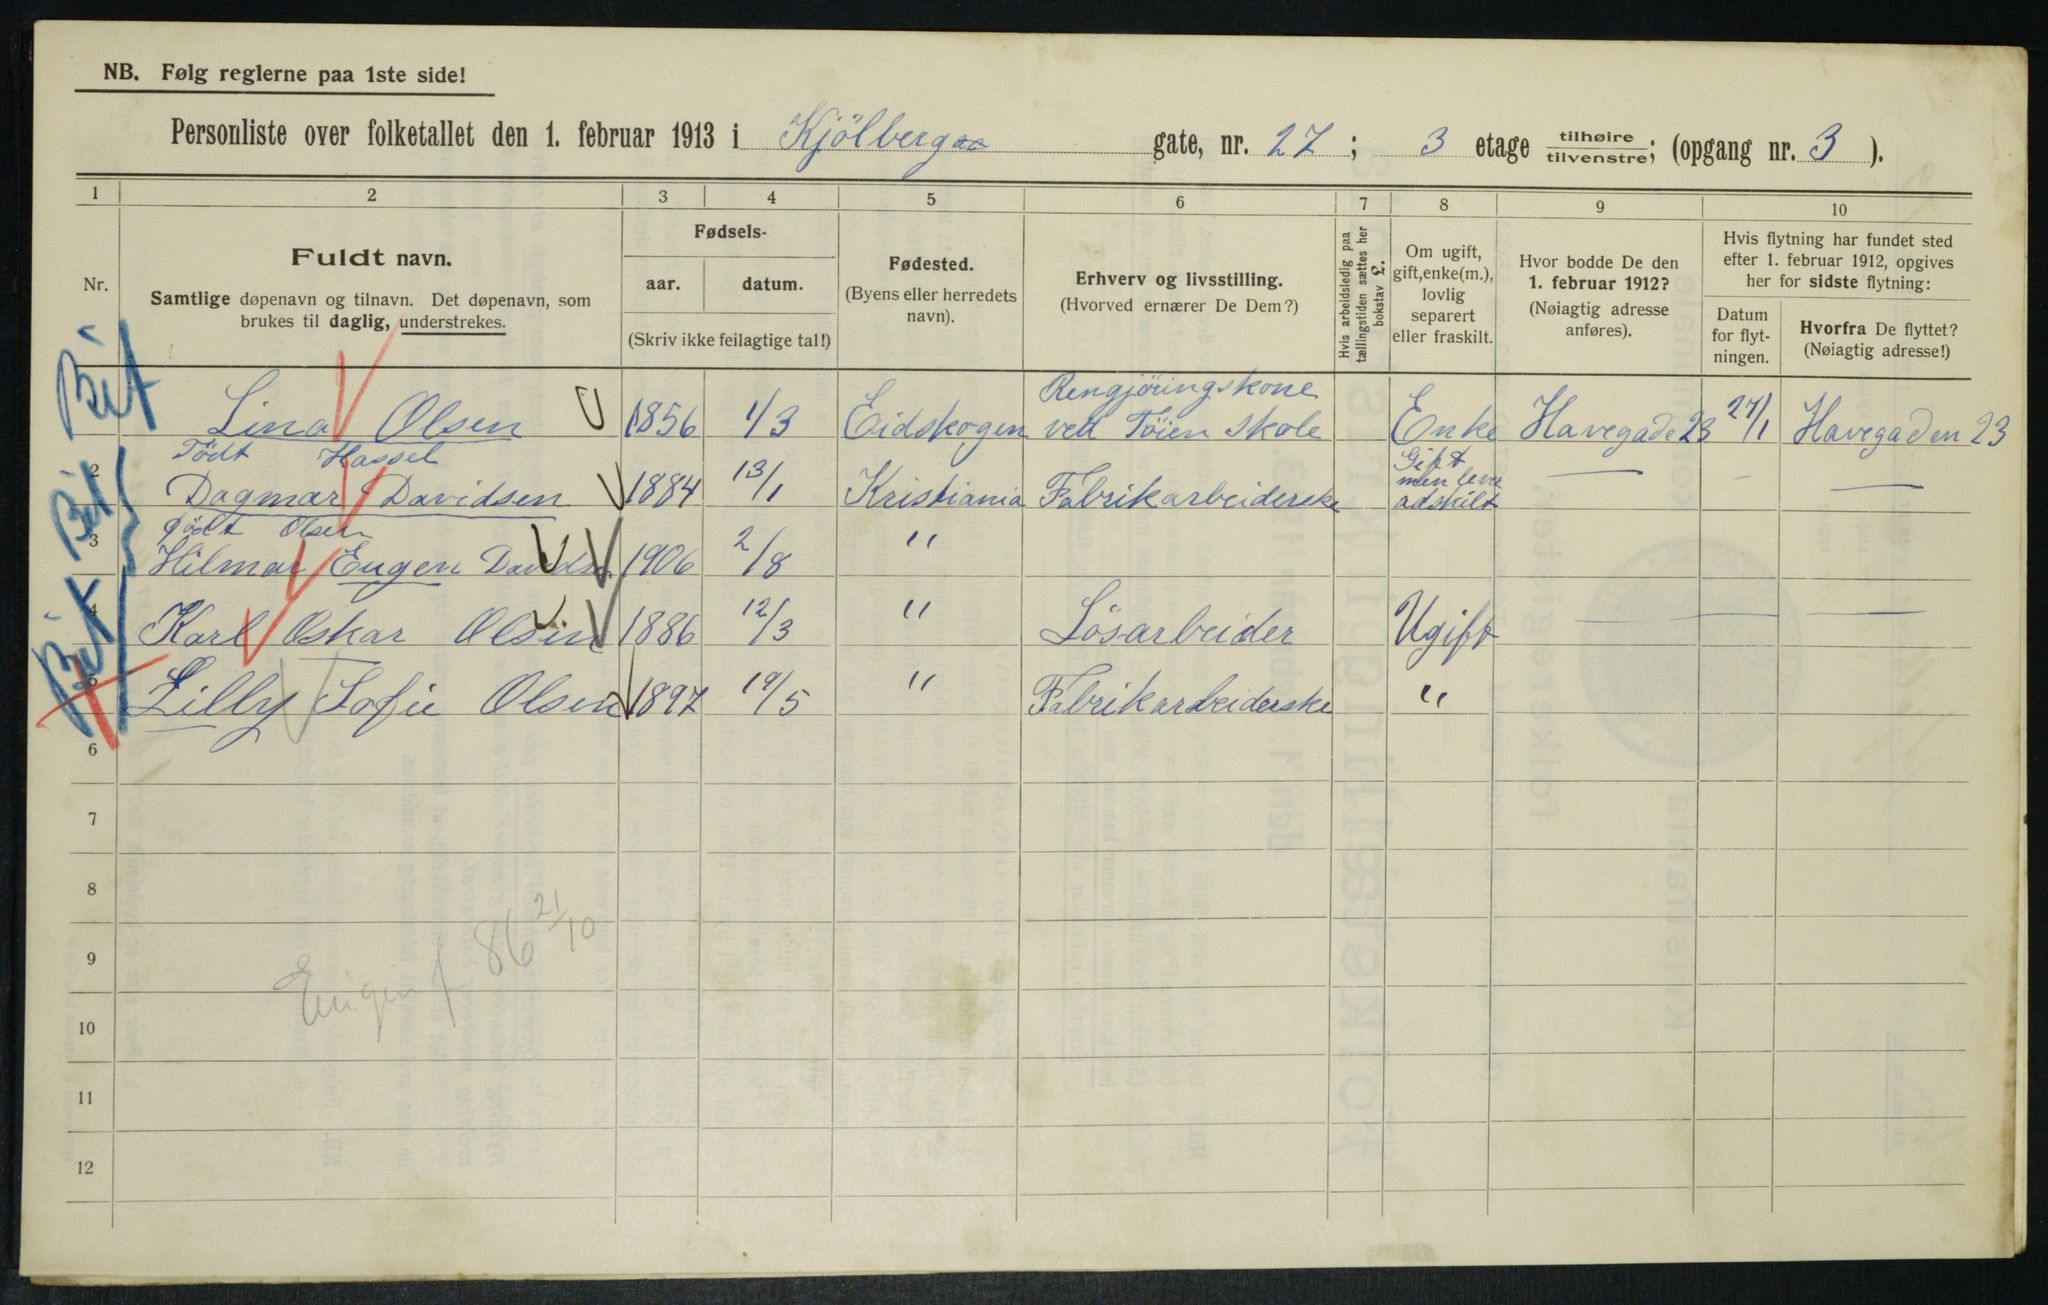 NB. Følg reglerne paa 1ste side!
Personliste over folketallet den 1. februar 1913 i Kjölberg gate, nr. 27; 3 etage tilhøire/tilvenstre; (opgang nr. 3).
1 2 3 4 5 6 7 8 9 10
Nr.
Fuldt navn.
Samtlige døpenavn og tilnavn. Det døpenavn, som
brukes til daglig, understrekes.
Fødsels-
aar. datum.
(Skriv ikke feilagtige tal!)
Fødested.
(Byens eller herredets
navn).
Erhverv og livsstilling.
(Hvorved ernærer De Dem?)
Hvis arbeidsledig paa
tællingstiden sættes her
bokstav £.
Om ugift,
gift, enke(m.),
lovlig
separert
eller fraskilt.
Hvor bodde De den
1. februar 1912?
(Nøiagtig adresse
anføres).
Hvis flytning har fundet sted
efter 1. februar 1912, opgives
her for sidste flytning:
Datum
for flyt-
ningen.
Hvorfra De flyttet?
(Nøiagtig adresse!)
Lina Olsen 1856 1/3 Eidskogen Rengjöringskone
ved Töien Skole Enke Havegade 23 27/1 Havegaden 23
Födt Hassel
2 Dagmar Davidsen 1884 13/1 Kristiania Fabrikarbeiderske Gift
men lever
adskilt —
födt Olsen
3 Hilmar Eugen Davidsen 1906 2/8 "
4 Karl Oskar Olsen 1886 12/3 " Lösarbeider Ugift — — —
5 Lilly Sofie Olsen 1897 19/5 " Fabrikarbeiderske "
6
7
8
9
10
11
12
86 21/10
Bit
Bit
Bit